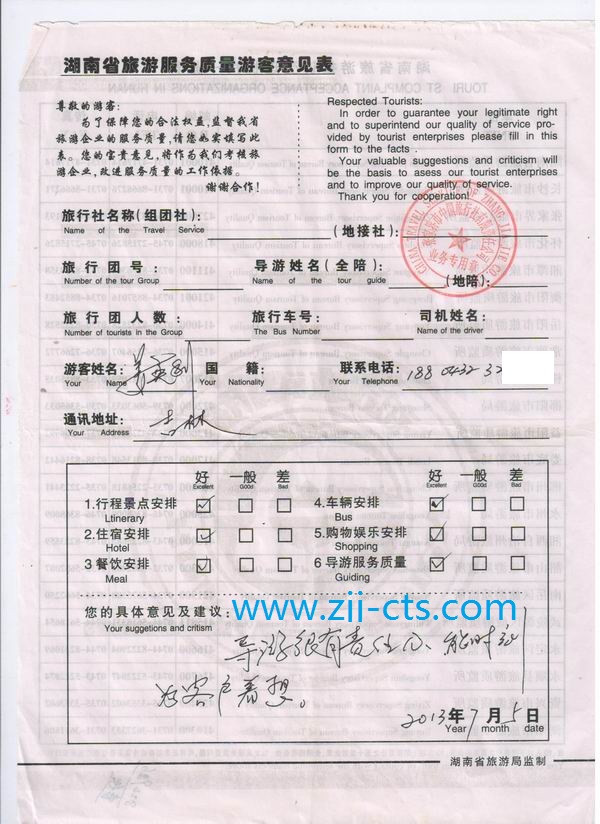 湖南省旅游服务质量游客意见表
尊敬的游客:
为了保障您的合法权益,监督我省
旅游企业的服务质量,请您如实填写此
表。您的宝贵意见,将作为我们考核旅
游企业,改进服务质量的工作依据。
谢谢合作!
Respected Tourists:
In order to guarantee your legitimate right
and to superintend our quality of service pro-
vided by tourist enterprises please fill in this
form to the facts .
Your valuable suggestions and criticism will
be the basis to asess our tourist enterprises
and to improve our quality of service.
Thank you for cooperation!
旅行社名称(组团社): (地接社):
Name of the Travel Service
业务专用章
旅行团号: 导游姓名(全陪): (地陪):
Number of the tour Group Name of the tour guide
旅行团人数: 旅行车号: 司机姓名:
Number of tourists in the Group The Bus Number Name of the driver
游客姓名: 国籍: 联系电话: 188 0432 32
Your Name Your Nationality Your Telephone
通讯地址: 吉林
Your Address
好 一般 差 好 一般 差
Excellent Good Bad Excellent Good Bad
1.行程景点安排 4.车辆安排
Ltinerary Bus
2.住宿安排 5.购物娱乐安排
Hotel Shopping
3 餐饮安排 6 导游服务质量
Meal Guiding
您的具体意见及建议:
Your suggetions and critism
www.zjj-cts.com
导游很有责任心、能时刻
为客户着想。
2013年7月5日
Year month date
湖南省旅游局监制